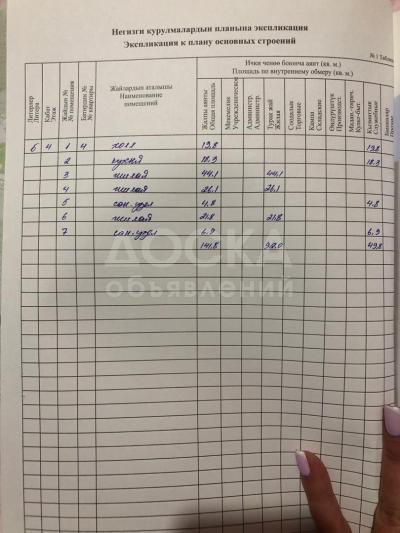 Негизги курулмалардын планына экспликация
Экспликация к плану основных строений
№ 1 Таблица
Ички ченөө боюнча аянт (кв. м.)
Площадь по внутреннему обмеру (кв. м.)
Литерлер
Литера
Кабат
Этаж
Жайдын №
№ помещения
Батирдин №
№ квартиры
Жайлардын аталышы
Наименование
помещений
Жалпы аянты
Общая площадь
Мекемелик
Учрежденческие
Администр.
Администр.
Турак жай
Жилая
Соодалык
Торговые
Кампа
Складские
Өндүрүштүк
Производст.
Кызматтык
Служебные
Б 4 1 4 холл 19,8 19,8
2 кухня 18,3 18,3
3 жилая 44,1 44,1
4 жилая 26,1 26,1
5 сан.узел 4,8 4,8
6 жилая 21,8 21,8
7 сан.узел 6,9 6,9
141,8 92,0 49,8
ДОСКА
объявлений